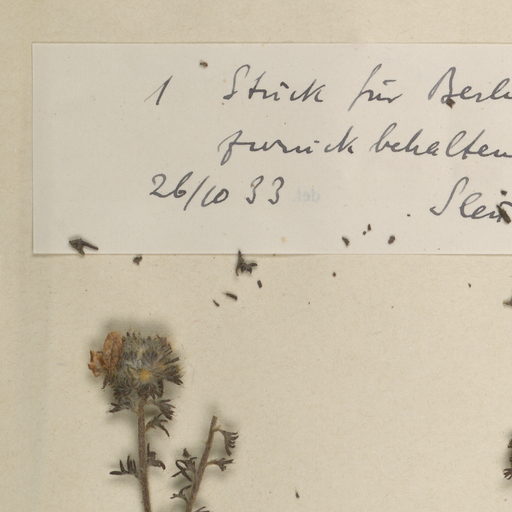 1 Stück für Berl
zurück behalten
26/10 33